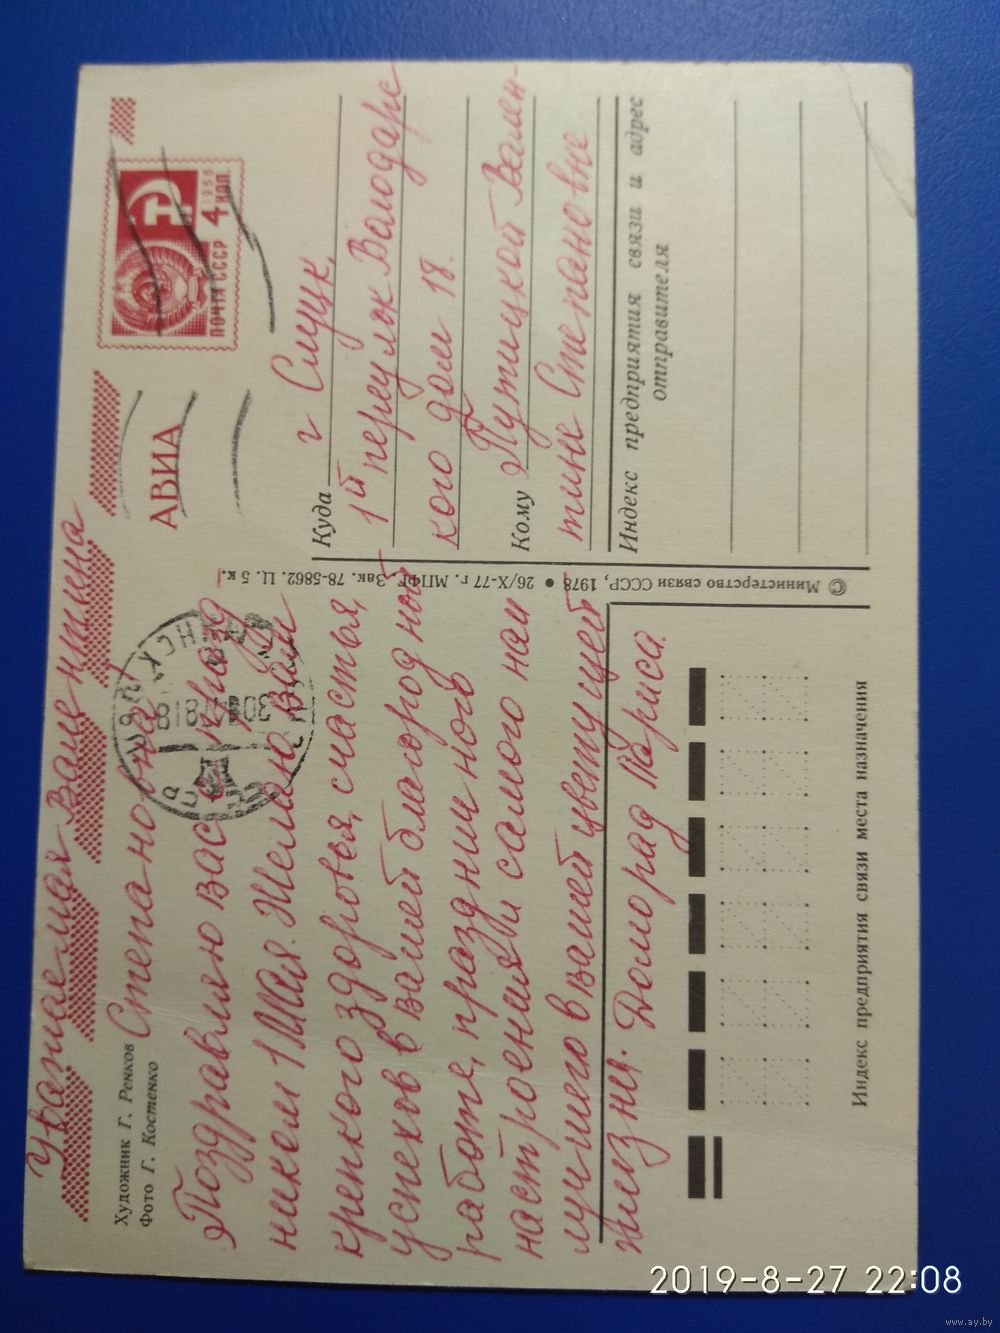 Уважаемая Валентина
Степановна
Поздравляю вас с празд
ником 1 Мая. Желаю вам
крепкого здоровья, счастья,
успехов в вашей благородной
работе, праздничного
настроения и самого наи
лучшего в вашей цветущей
жизни. Доморад Лариса.
Художник Г. Ренков
Фото Г. Костенко
АВИА
ПОЧТА СССР
1966
4 КОП.
Куда г Слуцк,
1й переулок Володарс
кого дом 18.
Кому Путицкой Вален-
тине Степановне
Индекс предприятия связи и адрес
отправителя
© Министерство связи СССР, 1978 • 26/X-77 г. МПФГ. Зак. 78-5862. Ц. 5 к.
Индекс предприятия связи места назначения
2019-8-27 22:08
www.ay.by